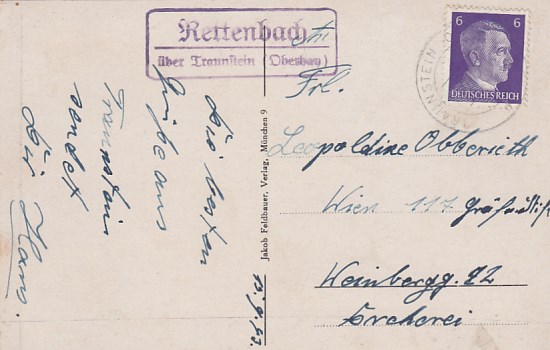 Rettenbach
über Traunstein (Oberbay)
6 6
DEUTSCHES REICH
TRAUNSTEIN
An
Frl.
Leopoldine Obberieth
Wien 117
Weinbergg. 22
Jakob Feldbauer, Verlag, München 9
Die besten
Grüße aus
Traunstein
sendet
Dir Hans.